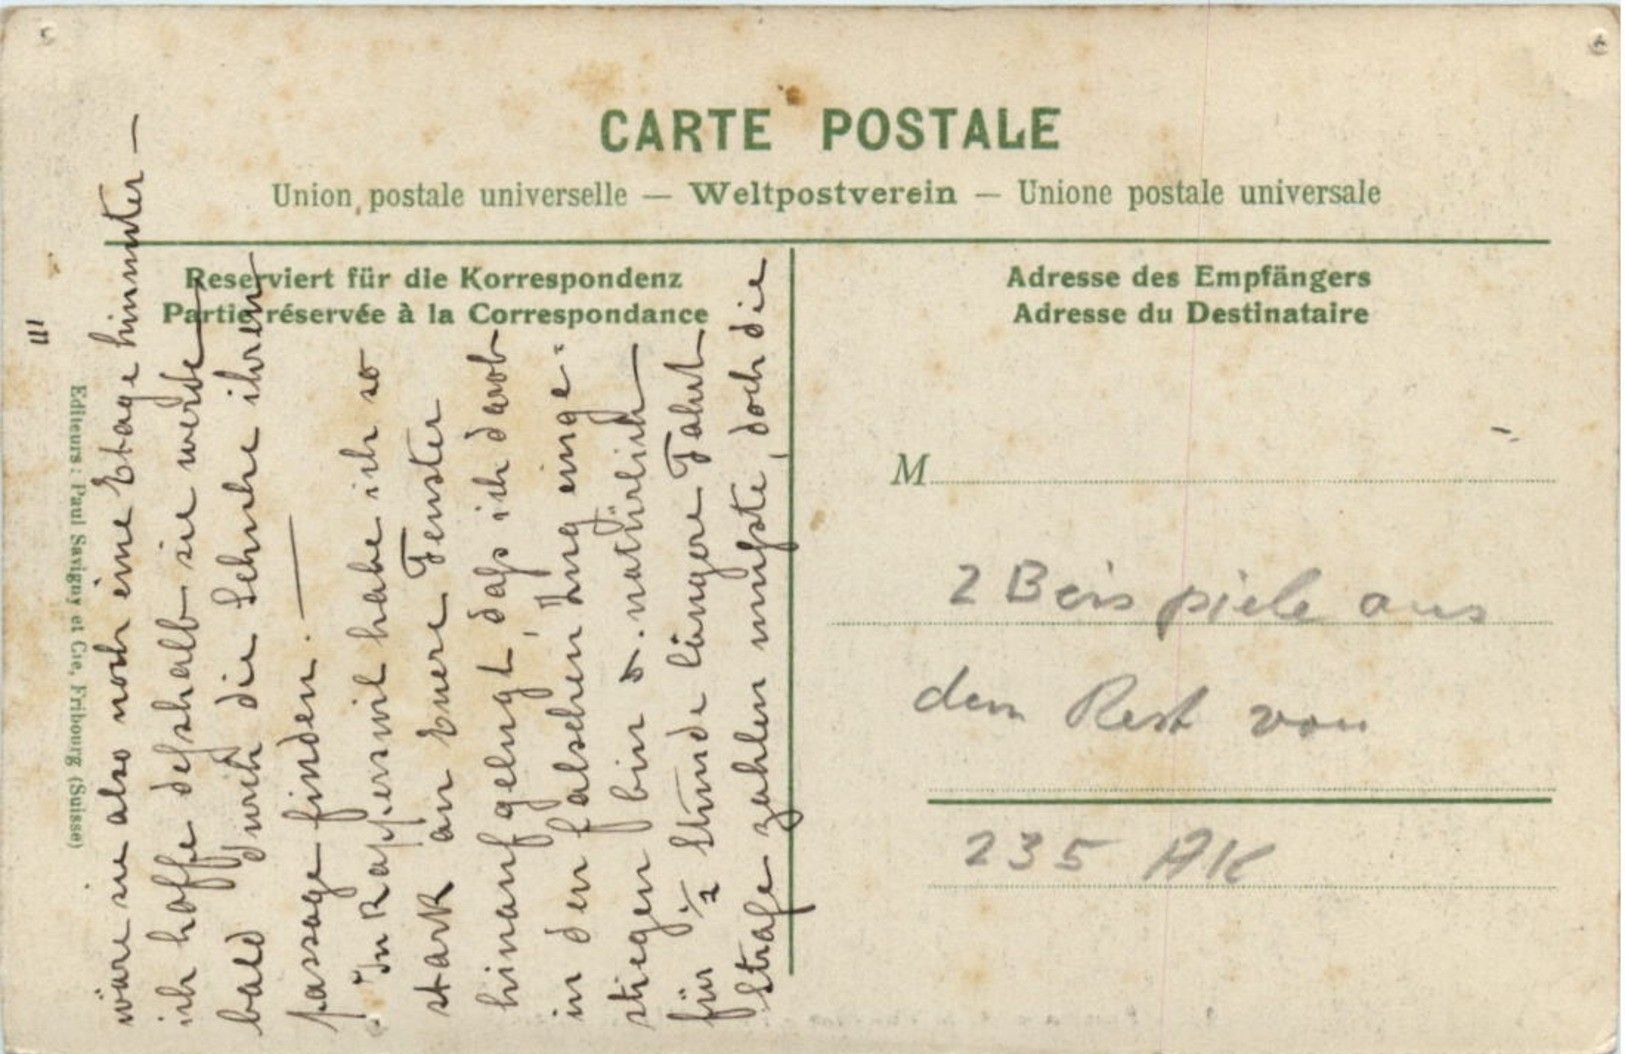 CARTE POSTALE
Union postale universelle — Weltpostverein — Unione postale universale
Reserviert für die Korrespondenz
Partie réservée à la Correspondance
Adresse des Empfängers
Adresse du Destinataire
M
2 Beispiele aus
dem Rest von
235 AK
Editeurs: Paul Savigny et Cie, Fribourg (Suisse)
III
wäre sie also noch eine Etage hinunter —
ich hoffe desshalb sie werde
bald durch die Schuhe ihren
passage finden. —
In Rapperswil habe ich so
stark an Euere Fenster
hinauf gelugt, dass ich darob
in den falschen Zug einge-
stiegen bin & natürlich
für ½ Stunde längere Fahrt
Strafe zahlen musste, doch die